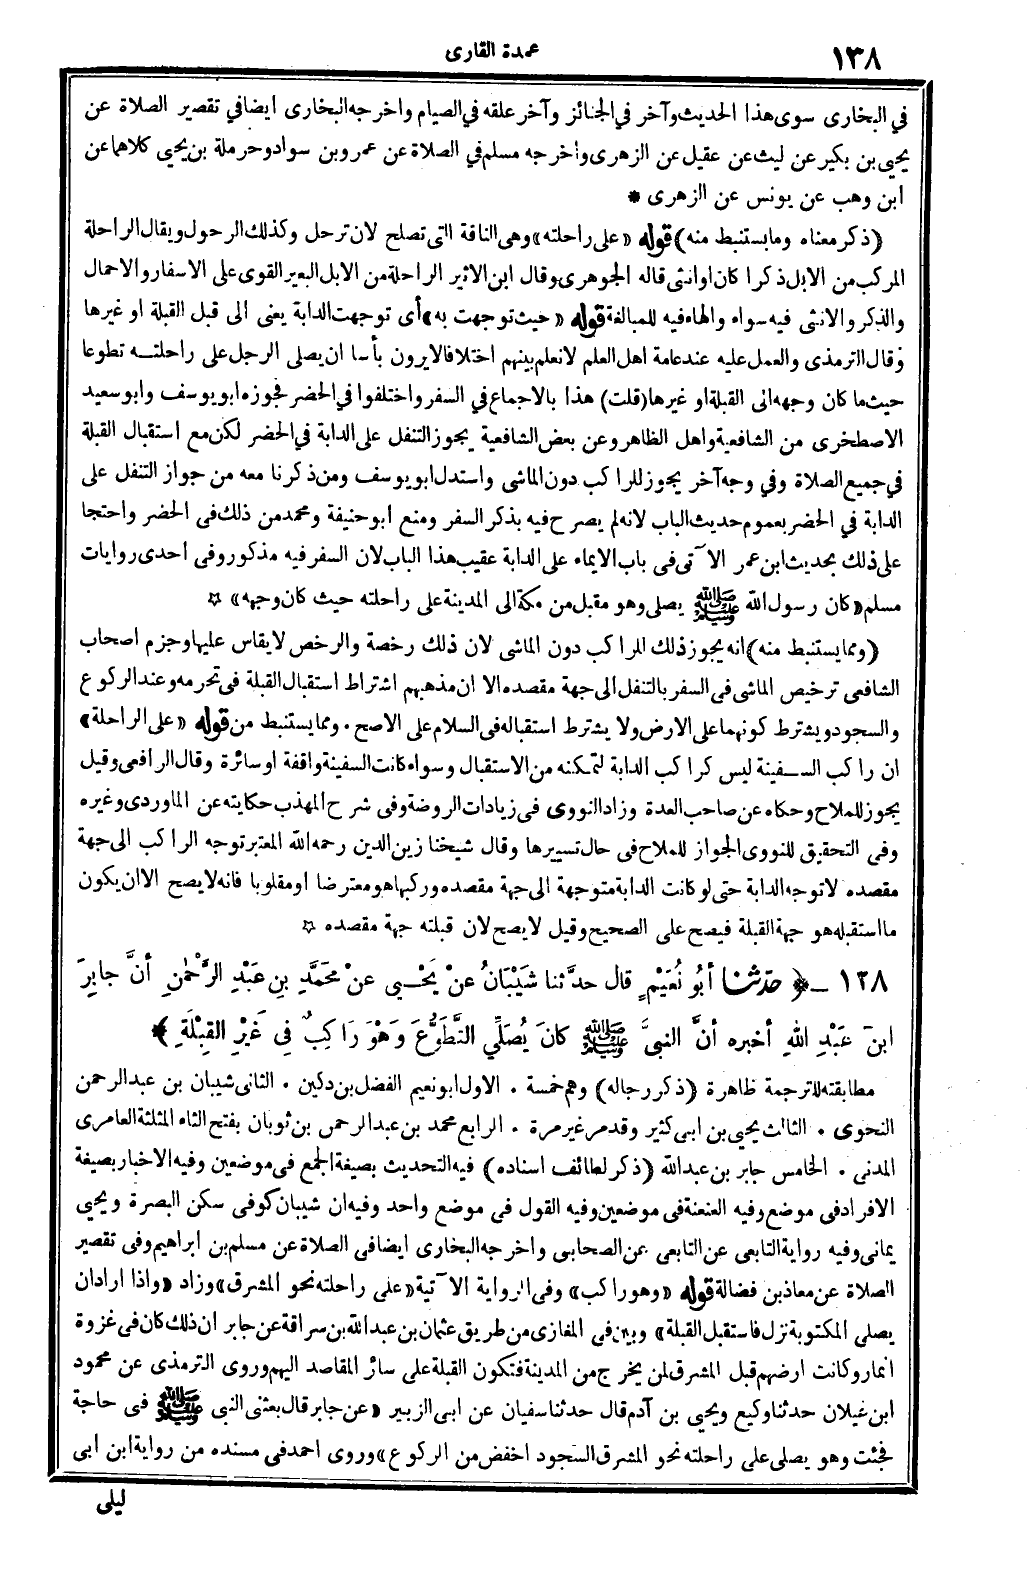 ١٣٨
عمدة القارى
في البخارى سوى هذا الحديث وآخر في الجنائز وآخر علقه في الصيام واخرجه البخارى ايضا في تقصير الصلاة عن
يحيى بن بكير عن ليث عن عقيل عن الزهرى واخرجه مسلم في الصلاة عن عمرو بن سواد وحرملة بن يحيى كلاهما عن
ابن وهب عن يونس عن الزهرى *
(ذكر معناه وما يستنبط منه) قوله «على راحلته» وهى الناقة التى تصلح لان ترحل وكذلك الرحول ويقال الراحلة
المركب من الابل ذكرا كان او انثى قاله الجوهرى وقال ابن الاثير الراحلة من الابل البعير القوى على الاسفار والاحمال
والذكر والانثى فيه سواء والهاء فيه للمبالغة قوله «حيث توجهت به» أى توجهت الدابة يعنى الى قبل القبلة او غيرها
وقال الترمذى والعمل عليه عند عامة اهل العلم لا نعلم بينهم اختلافا لا يرون بأسا ان يصلى الرجل على راحلته تطوعا
حيث ما كان وجهه الى القبلة او غيرها (قلت) هذا بالاجماع في السفر واختلفوا في الحضر فجوزه ابو يوسف وابو سعيد
الاصطخرى من الشافعية واهل الظاهر وعن بعض الشافعية يجوز التنفل على الدابة في الحضر لكن مع استقبال القبلة
في جميع الصلاة وفي وجه آخر يجوز للراكب دون الماشى واستدل ابو يوسف ومن ذكرنا معه من جواز التنفل على
الدابة في الحضر بعموم حديث الباب لانه لم يصرح فيه بذكر السفر ومنع ابو حنيفة ومحمد من ذلك فى الحضر واحتجا
على ذلك بحديث ابن عمر الآتى فى باب الايماء على الدابة عقيب هذا الباب لان السفر فيه مذكور وفى احدى روايات
مسلم «كان رسول الله ﷺ يصلى وهو مقبل من مكة الى المدينة على راحلته حيث كان وجهه» ☆
(ومما يستنبط منه) انه يجوز ذلك للراكب دون الماشى لان ذلك رخصة والرخص لا يقاس عليها وجزم اصحاب
الشافعى ترخيص الماشى فى السفر بالتنفل الى جهة مقصده الا ان مذهبهم اشتراط استقبال القبلة فى تحرمه وعند الركوع
والسجود ويشترط كونهما على الارض ولا يشترط استقباله فى السلام على الاصح . ومما يستنبط من قوله «على الراحلة»
ان راكب السفينة ليس كراكب الدابة لتمكنه من الاستقبال وسواء كانت السفينة واقفة او سائرة وقال الرافعى وقيل
يجوز للملاح وحكاه عن صاحب العدة وزاد النووى فى زيادات الروضة وفى شرح المهذب حكايته عن الماوردى وغيره
وفى التحقيق للنووى الجواز للملاح فى حال تسييرها وقال شيخنا زين الدين رحمه الله المعتبر توجه الراكب الى جهة
مقصده لا توجه الدابة حتى لو كانت الدابة متوجهة الى جهة مقصده وركبها هو معترضا او مقلوبا فانه لا يصح الا ان يكون
ما استقبله هو جهة القبلة فيصح على الصحيح وقيل لا يصح لان قبلته جهة مقصده ☆
١٢٨ - ﴿ حدّثنا أبُو نُعَيْمٍ قال حدّثنا شَيْبَانُ عنْ يَحْيى عنْ مُحَمَّدِ بنِ عَبْدِ الرَّحْمٰنِ أنَّ جابِرَ
ابنَ عَبْدِ اللهِ أخبره أنَّ النبيَّ ﷺ كانَ يُصَلِّي التَّطَوُّعَ وَهْوَ رَاكِبٌ فِي غَيْرِ القِبْلَةِ ﴾
مطابقته للترجمة ظاهرة (ذكر رجاله) وهم خمسة . الاول ابو نعيم الفضل بن دكين . الثانى شيبان بن عبد الرحمن
النحوى . الثالث يحيى بن ابى كثير وقد مر غير مرة . الرابع محمد بن عبد الرحمن بن ثوبان بفتح الثاء المثلثة العامرى
المدنى . الخامس جابر بن عبد الله (ذكر لطائف اسناده) فيه التحديث بصيغة الجمع فى موضعين وفيه الاخبار بصيغة
الافراد فى موضع وفيه العنعنة فى موضعين وفيه القول فى موضع واحد وفيه ان شيبان كوفى سكن البصرة ويحيى
يمانى وفيه رواية التابعى عن التابعى عن الصحابى واخرجه البخارى ايضا فى الصلاة عن مسلم بن ابراهيم وفى تقصير
الصلاة عن معاذ بن فضالة قوله «وهو راكب» وفى الرواية الآتية «على راحلته نحو المشرق» وزاد «واذا اراد ان
يصلى المكتوبة نزل فاستقبل القبلة» وبين فى المغازى من طريق عثمان بن عبد الله بن سراقة عن جابر ان ذلك كان فى غزوة
انمار وكانت ارضهم قبل المشرق لمن يخرج من المدينة فتكون القبلة على سائر المقاصد اليهم وروى الترمذى عن محمود
ابن غيلان حدثنا وكيع ويحيى بن آدم قال حدثنا سفيان عن ابى الزبير «عن جابر قال بعثنى النبى ﷺ فى حاجة
فجئت وهو يصلى على راحلته نحو المشرق السجود اخفض من الركوع» وروى احمد فى مسنده من رواية ابن ابى
ليلى